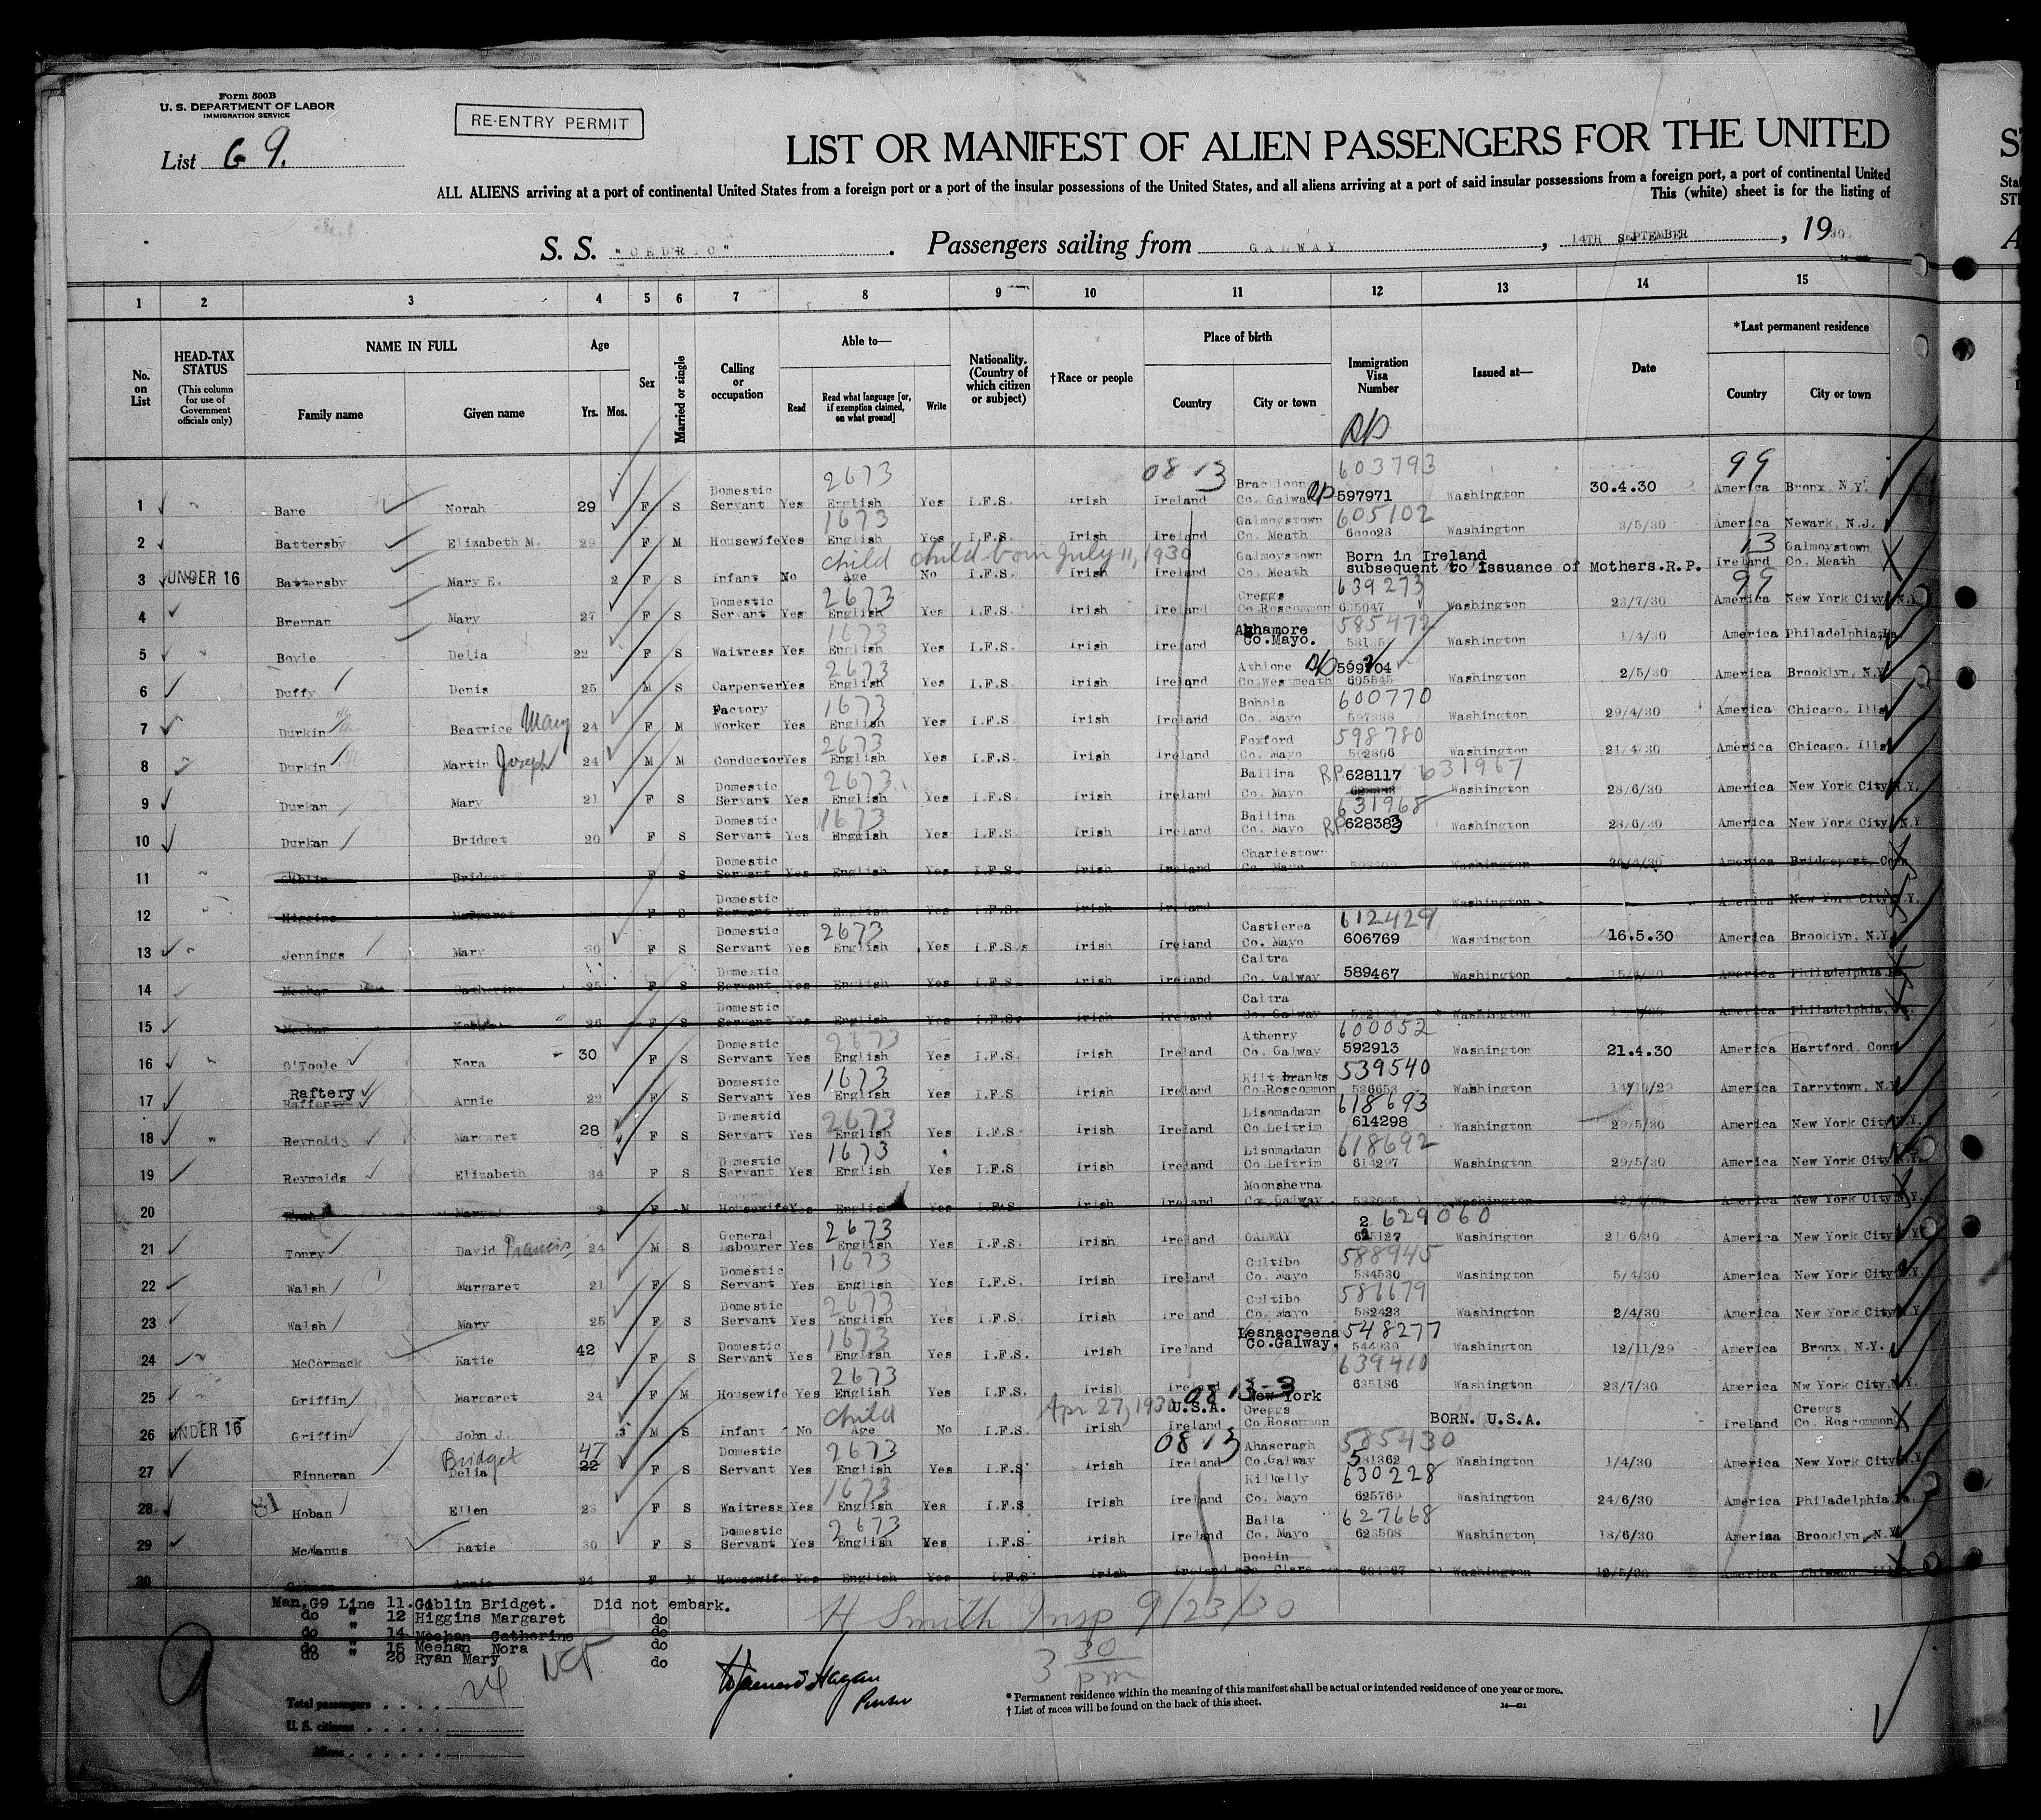 Form 500B
U. S. DEPARTMENT OF LABOR
IMMIGRATION SERVICE
RE-ENTRY PERMIT
List G 9.
LIST OR MANIFEST OF ALIEN PASSENGERS FOR THE UNITED
ALL ALIENS arriving at a port of continental United States from a foreign port or a port of the insular possessions of the United States, and all aliens arriving at a port of said insular possessions from a foreign port, a port of continental United
This (white) sheet is for the listing of
S. S. "CEDRIC". Passengers sailing from GALWAY, 14TH SEPTEMBER, 1930
1 2 3 4 5 6 7 8 9 10 11 12 13 14 15
No. on List
HEAD-TAX STATUS
(This column for use of Government officials only)
NAME IN FULL
Family name Given name
Age
Yrs. Mos.
Sex
Married or single
Calling or occupation
Able to—
Read Read what language [or, if exemption claimed, on what ground] Write
Nationality. (Country of which citizen or subject)
†Race or people
Place of birth
Country City or town
Immigration Visa Number
Issued at—
Date
*Last permanent residence
Country City or town
RP
2673 08 13 603793 99
1 Bane Norah 29 F S Domestic Servant Yes English Yes I.F.S. Irish Ireland Co. Galway RP 597971 Washington 30.4.30 America Bronx, N.Y.
1673 605102
2 Battersby Elizabeth M. 29 F M Housewife Yes English Yes I.F.S. Irish Ireland Galmoystown Co. Meath 600023 Washington 3/5/30 America Newark, N.J.
child child born July 11, 1930 13
3 UNDER 16 Battersby Mary E. 2 F S Infant No Age No I.F.S. Irish Ireland Galmoystown Co. Meath Born in Ireland subsequent to Issuance of Mothers.R.P. Ireland Galmoystown Co. Meath
2673 639273 99
4 Brennan Mary 27 F S Domestic Servant Yes English Yes I.F.S. Irish Ireland Creggs Co.Roscommon 635047 Washington 23/7/30 America New York City, N.Y.
1673 585472
5 Boyle Delia 22 F S Waitress Yes English Yes I.F.S. Irish Ireland Aghamore Co.Mayo. Washington 1/4/30 America Philadelphia, Pa.
2673
6 Duffy Denis 25 M S Carpenter Yes English Yes I.F.S. Irish Ireland Athlone Co.Westmeath 605545 Washington 2/5/30 America Brooklyn, N.Y.
1673 600770
7 Durkin Beatrice Mary 24 F M Factory Worker Yes English Yes I.F.S. Irish Ireland Bohola Co. Mayo Washington 29/4/30 America Chicago, Ills
2673 598780
8 Durkin Martin Joseph 24 M M Conductor Yes English Yes I.F.S. Irish Ireland Foxford Co. Mayo 592806 Washington 21/4/30 America Chicago, Ills
2673 RP 628117 631967
9 Durkan Mary 21 F S Domestic Servant Yes English Yes I.F.S. Irish Ireland Ballina Co. Mayo Washington 28/6/30 America New York City N.Y.
1673 631968
10 Durkan Bridget 20 F S Domestic Servant Yes English Yes I.F.S. Irish Ireland Ballina Co. Mayo RP 628383 Washington 28/6/30 America New York City, N.Y
11 Goblin Bridget F S Domestic Servant Yes English Yes I.F.S. Irish Ireland Charlestown Co. Mayo Washington America Bridgeport, Conn
12 Higgins Margaret F S Domestic Servant Yes English Yes I.F.S. Irish Ireland Washington America New York City N.Y.
2673 612429
13 Jennings Mary 30 F S Domestic Servant Yes English Yes I.F.S. Irish Ireland Castlerea Co. Mayo 606769 Washington 16.5.30 America Brooklyn, N.Y.
14 Meehan Catherine 25 F S Domestic Servant Yes English Yes I.F.S. Irish Ireland Caltra Co. Galway 589467 Washington America Philadelphia, Pa
15 Meehan 26 F S Domestic Servant Yes English Yes I.F.S. Irish Ireland Caltra Co. Galway Washington America Philadelphia,
2673 600052
16 O'Toole Nora 30 F S Domestic Servant Yes English Yes I.F.S. Irish Ireland Athenry Co. Galway 592913 Washington 21.4.30 America Hartford, Conn
1673 539540
17 Raftery Rafferty Annie 22 F S Domestic Servant Yes English Yes I.F.S. Irish Ireland Co.Roscommon 536653 Washington America Tarrytown, N.Y.
2673 618693
18 Reynolds Margaret 28 F S Domestid Servant Yes English Yes I.F.S. Irish Ireland Lisomadaun Co.Leitrim 614298 Washington 29/5/30 America New York City N.Y.
1673 618692
19 Reynolds Elizabeth 34 F S Domestic Servant Yes English Yes I.F.S Irish Ireland Lisomadaun Co.Leitrim 614297 Washington 29/5/30 America New York City, N.Y.
20 Ryan Mary F M Housewife Yes English Yes I.F.S. Irish Ireland Moonsherna Co. Galway. Washington America New York City N.Y.
2673 629060
21 Tonry David Francis 24 M S General Labourer Yes English Yes I.F.S. Irish Ireland GALWAY Washington 21/6/30 America New York City N.Y
1673 588945
22 Walsh Margaret 21 F S Domestic Servant Yes English Yes I.F.S. Irish Ireland Cultibo Co. Mayo 584530 Washington 5/4/30 America New York City N.Y.
2673 586679
23 Walsh Mary 25 F S Domestic Servant Yes English Yes I.F.S. Irish Ireland Cultibo Co. Mayo 582423 Washington 2/4/30 America New York City N.Y.
1673 548277
24 McCormack Katie 42 F S Domestic Servant Yes English Yes I.F.S. Irish Ireland Lesnacreena Co.Galway. Washington 12/11/29 America Bronx, N.Y.
2673 639410
25 Griffin Margaret 24 F M Housewife Yes English Yes I.F.S. Irish Ireland 635186 Washington 23/7/30 America Nw York City N.Y.
child Apr 27, 1930 08 13-3 U.S.A. New York
26 UNDER 16 Griffin John J. 3 M S Infant No Age No I.F.S. Irish Ireland Creggs Co.Roscommon BORN. U.S.A. Ireland Creggs Co. Roscommon
2673 08 13 585430
27 Finneran Bridget Delia 47 22 F S Domestic Servant Yes English Yes I.F.S Irish Ireland Ahascragh Co.Galway 581362 Washington 1/4/30 America New York City N.Y.
1673 630228
28 Hoban Ellen 23 F S Waitress Yes English Yes I.F.S Irish Ireland Kilkelly Co. Mayo 625769 Washington 24/6/30 America Philadelphia, Pa.
2673 627668
29 McManus Katie 30 F S Domestic Servant Yes English Yes I.F.S Irish Ireland Balla Co. Mayo 623508 Washington 18/6/30 Ameriaa Brooklyn, N.Y
30 Annie 24 F M Housewife Yes English Yes I.F.S Irish Ireland Doolin Co. Clare Washington 12/5/30 America Chicago, Ill
Man,G9 Line 11. Goblin Bridget. Did not embark.
do " 12 Higgins Margaret do
do " 14 Meehan Catherine do
do " 15 Meehan Nora do
do " 20 Ryan Mary do
H Smith Insp 9/23/30
3 30 pm
Purser
Total passengers 24
U. S. citizens
Aliens
* Permanent residence within the meaning of this manifest shall be actual or intended residence of one year or more.
† List of races will be found on the back of this sheet.